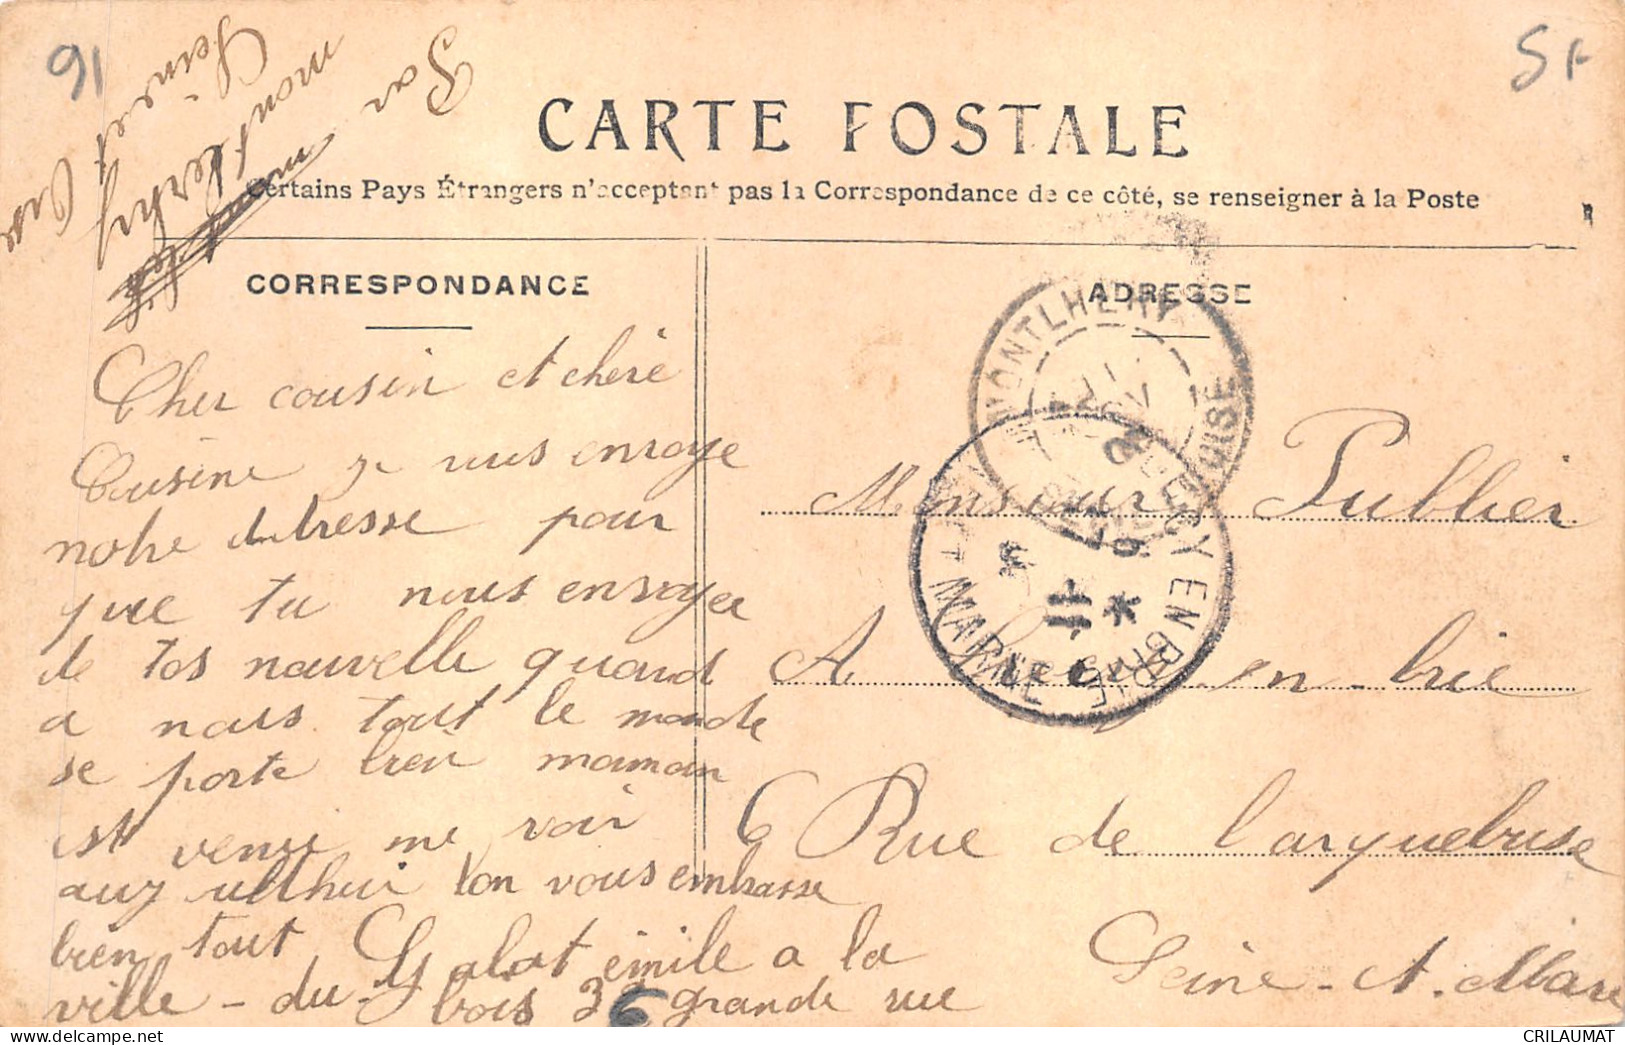 91
S+
Par
montlerhy
Seine et Oise
CARTE POSTALE
Certains Pays Étrangers n'acceptent pas la Correspondance de ce côté, se renseigner à la Poste
CORRESPONDANCE
ADRESSE
Cher cousin et chère
Cousine je vous envoye
notre adresse pour
que tu nous envoyer
de tos nouvelle quand
a nous tout le monde
se porte bien maman
est venue me voir
aujourdhui lon vous embrasse
bien tout Galat émile a la
ville - du - bois 36 grande rue
MONTLHÉRY
SEINE ET OISE
LIZY EN BRIE
MARNE
Monsieur Publier
A en brie
6 Rue de l'arquebuse
Seine - A. Marne
CRILAUMAT